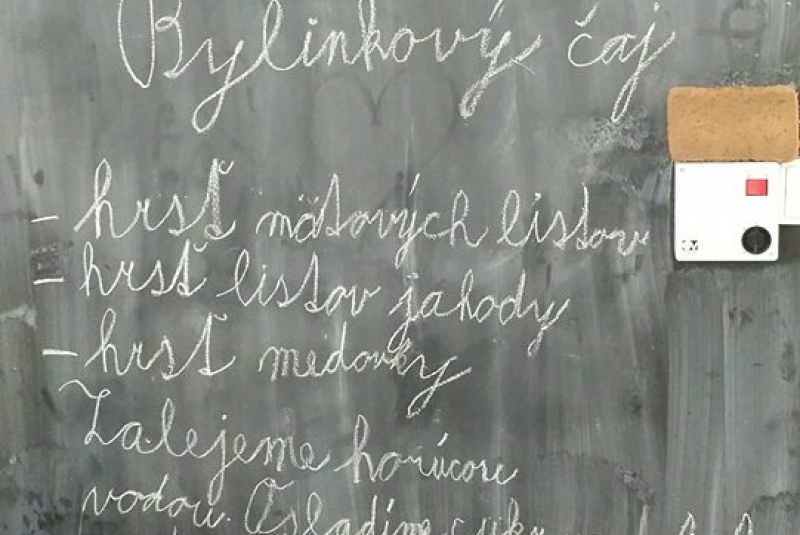 Bylinkový čaj
- hrsť mätových listov
- hrsť listov jahody
- hrsť medovky
Zalejeme horúcou
vodou. Osladíme